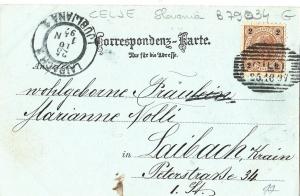 CELJE Slovenia B79034 G
LAIBACH LJUBLJANA
Correspondenz-Karte.
Nur für die Adresse.
2 2
CILLI
25.10.97
An
wohlgeborne Fräulein
Marianne Nolli
Laibach, Krain
Petersstrasse 34
I. St.